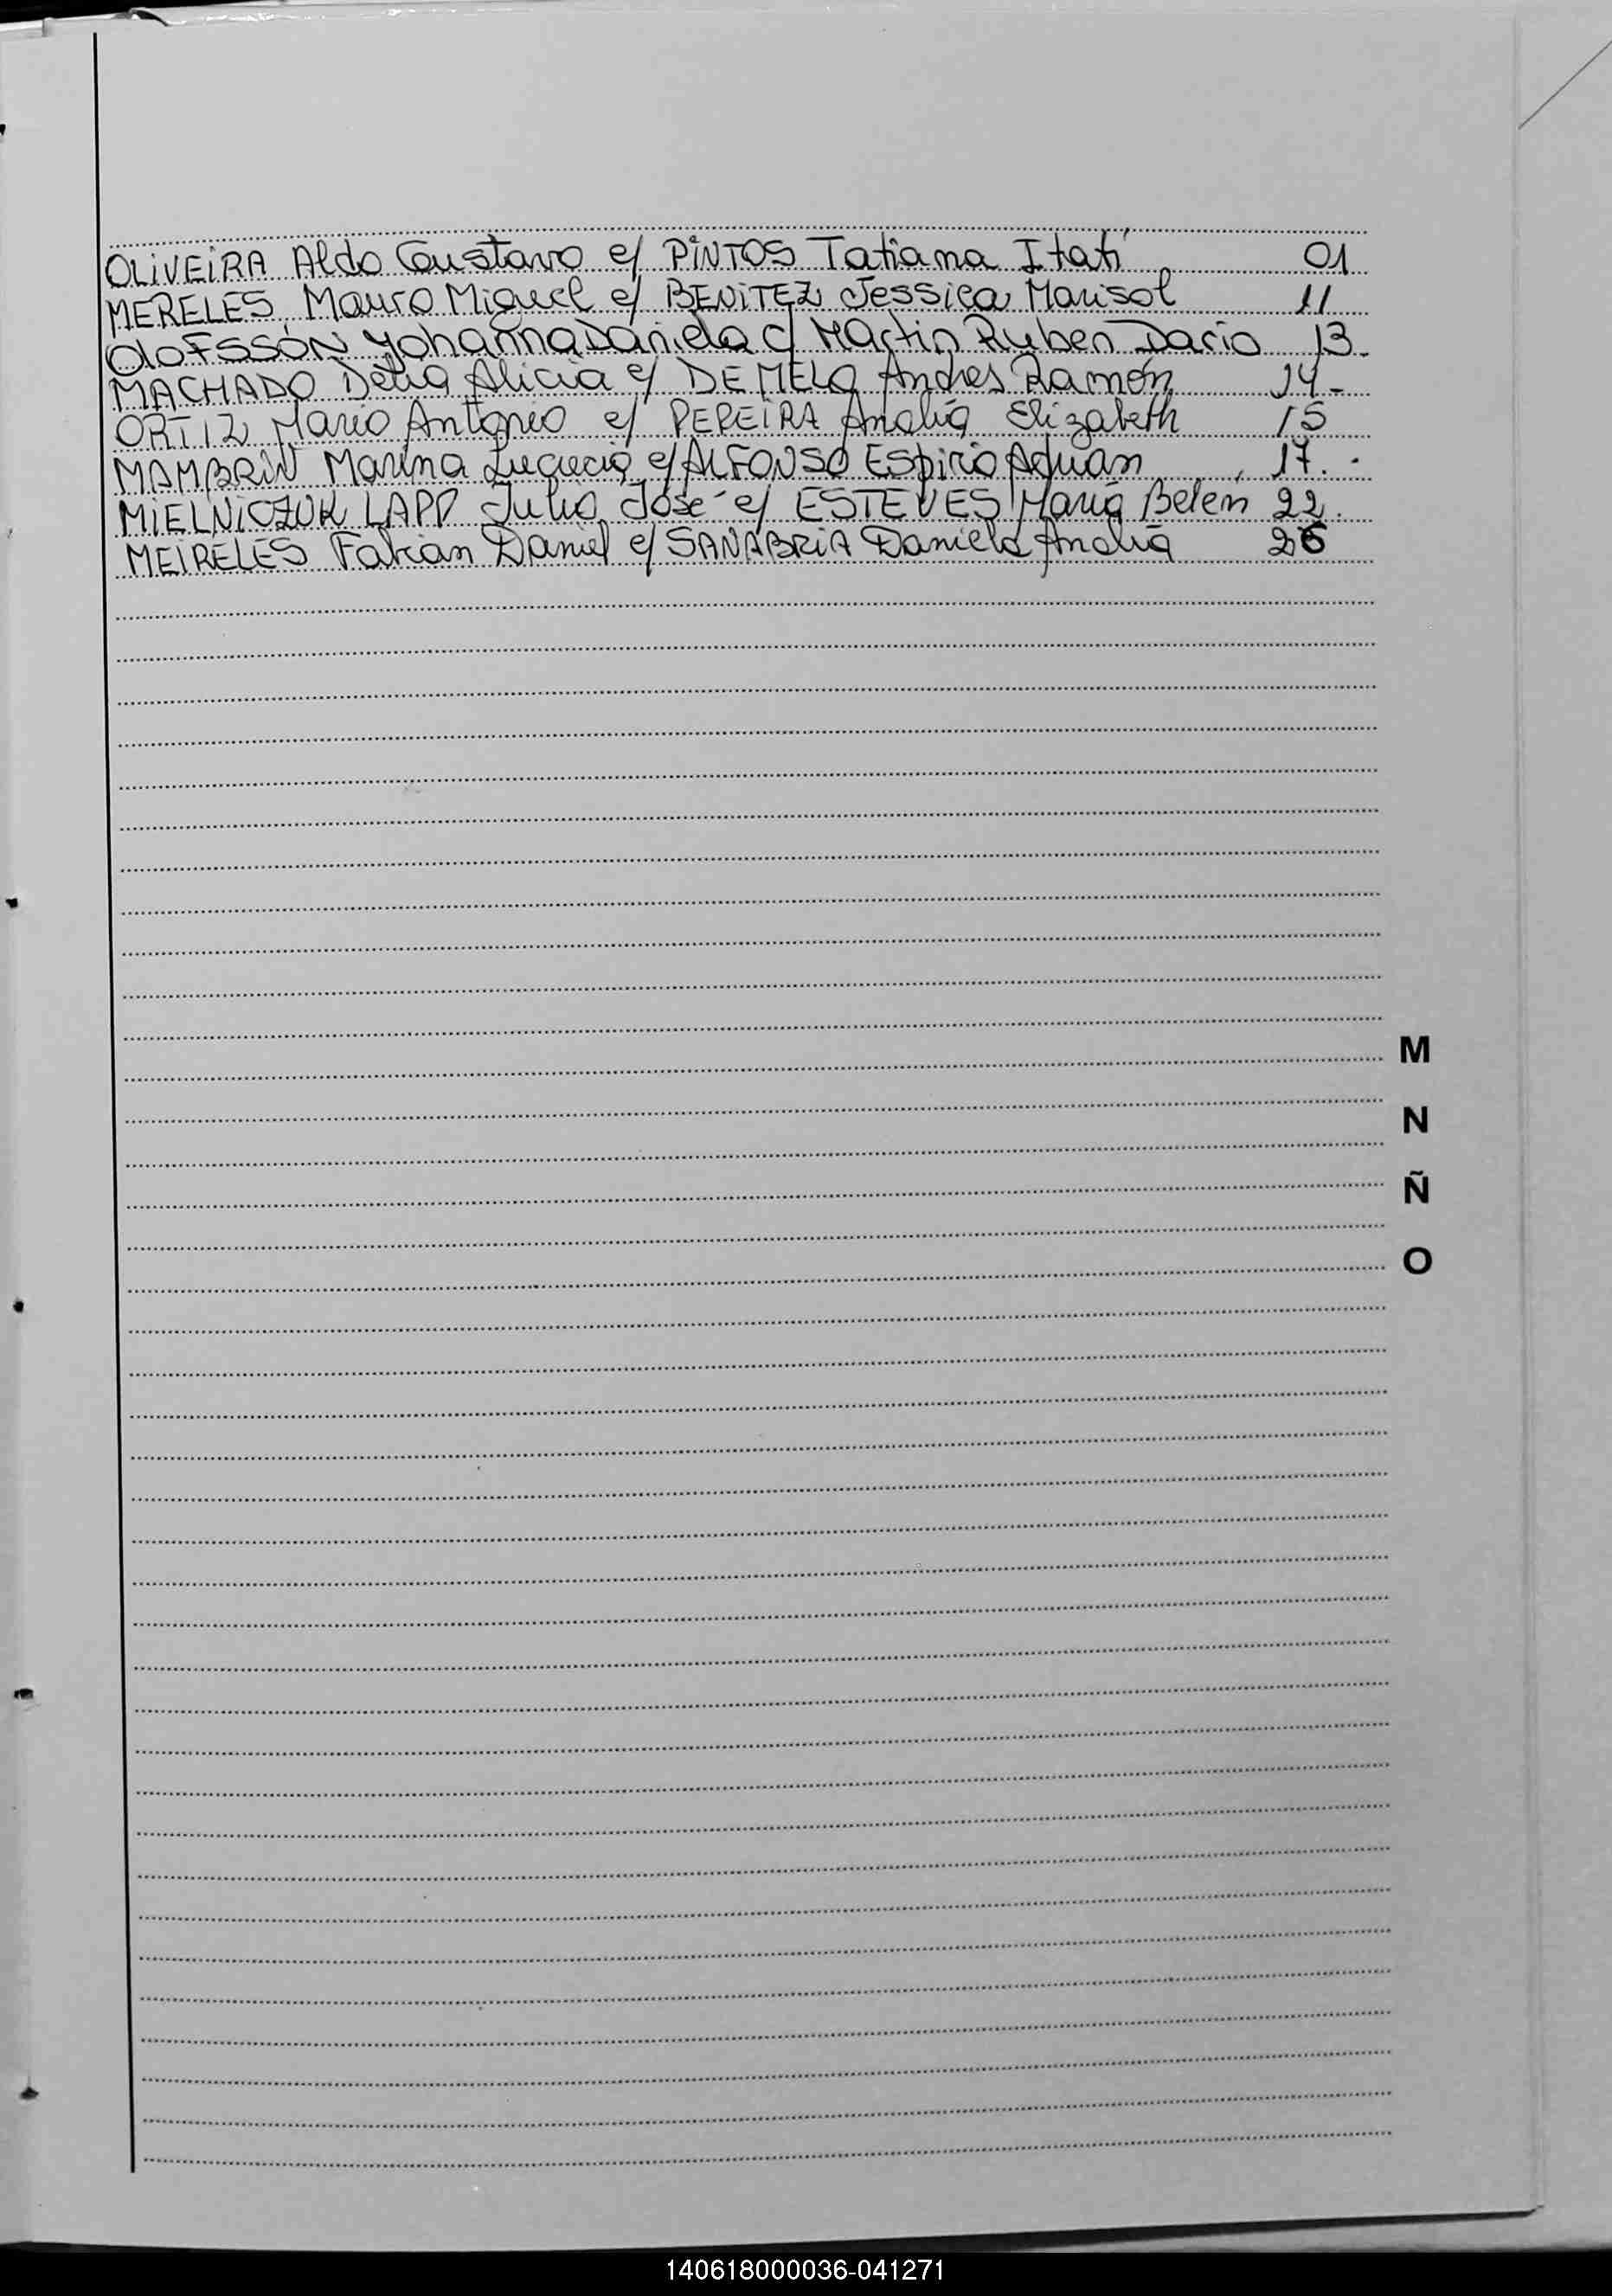 OLIVEIRA Aldo Gustavo c/ PINTOS Tatiana Itatí 01
MERELES, Mauro Miguel c/ BENITEZ Jessica Marisol 11
OLOFSSON Yohanna Daniela c/ Martin Ruben Dario 13.
MACHADO Delia Alicia c/ DE MELO Andres Ramón 14-
ORTIZ Mario Antonio c/ PEREIRA Analia Elizabeth 15
MAMBRIN Marina c/ ALFONSO Espirio Adrian 17.-
MIELNICZUK LAPP Julio José c/ ESTEVES María Belen 22.
MEIRELES Fabian Daniel c/ SANABRIA Daniela Analia 26
M
N
Ñ
O
140618000036-041271